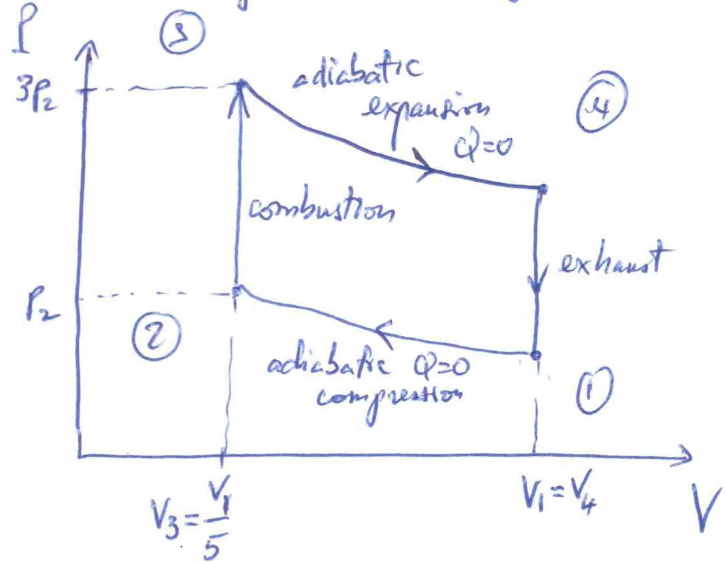 P
③
3P₂
adiabatic
expansion
Q=0
④
combustion
exhaust
P₂
②
adiabatic Q=0
compression
①
V₃ = V₁/5
V₁ = V₄
V